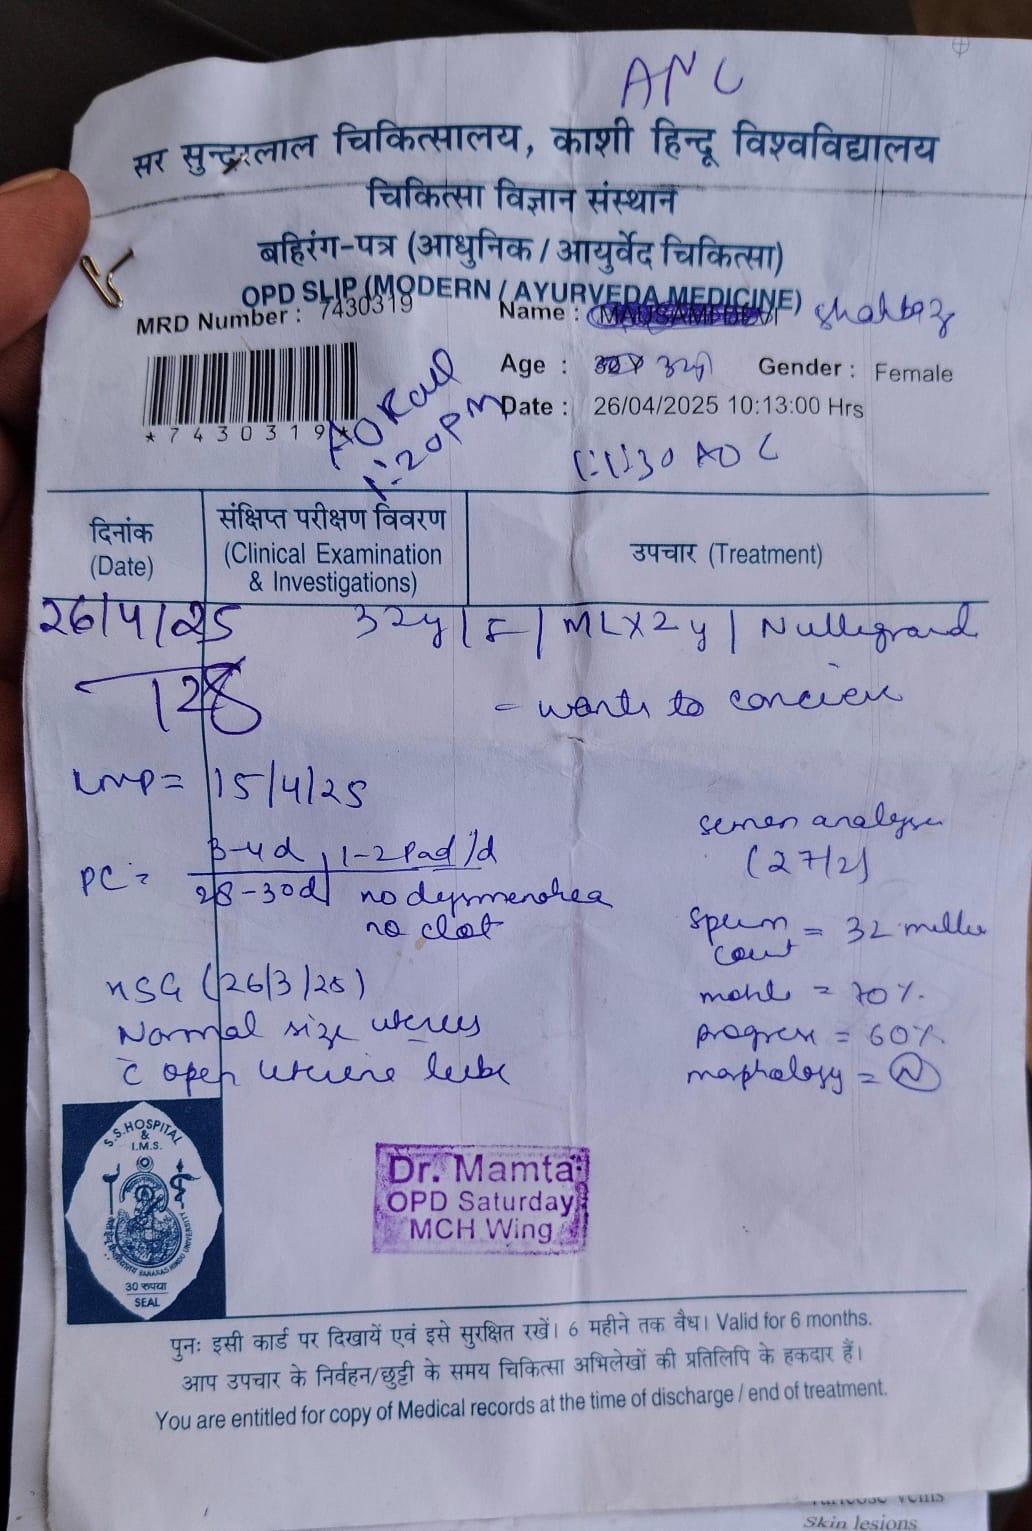 ANC
सर सुन्दरलाल चिकित्सालय, काशी हिन्दू विश्वविद्यालय
चिकित्सा विज्ञान संस्थान
बहिरंग-पत्र (आधुनिक / आयुर्वेद चिकित्सा)
OPD SLIP (MODERN / AYURVEDA MEDICINE)
MRD Number : 7430319 Name : MAUSAMI DEVI
Age : 32y Gender : Female
Date : 26/04/2025 10:13:00 Hrs
*7430319*
1:20PM
दिनांक
(Date)
संक्षिप्त परीक्षण विवरण
(Clinical Examination
& Investigations)
उपचार (Treatment)
26/4/25 32y / F / MLX2y / Nulligravid
128 - wants to concieve
LMP = 15/4/25
PC = 3-4d, 1-2 Pad/d
28-30d no dysmenohea
no clot
semen analysis
(27/2)
sperm count = 32 million
motile = 70%
progress = 60%
morphology = N
HSG (26/3/25)
Normal size uterus
c̄ open uterine tube
S.S. HOSPITAL
&
I.M.S.
BANARAS HINDU UNIVERSITY
30 रुपया
SEAL
Dr. Mamta
OPD Saturday
MCH Wing
पुनः इसी कार्ड पर दिखायें एवं इसे सुरक्षित रखें। 6 महीने तक वैध। Valid for 6 months.
आप उपचार के निर्वहन/छुट्टी के समय चिकित्सा अभिलेखों की प्रतिलिपि के हकदार हैं।
You are entitled for copy of Medical records at the time of discharge / end of treatment.
Varicose veins
Skin lesions